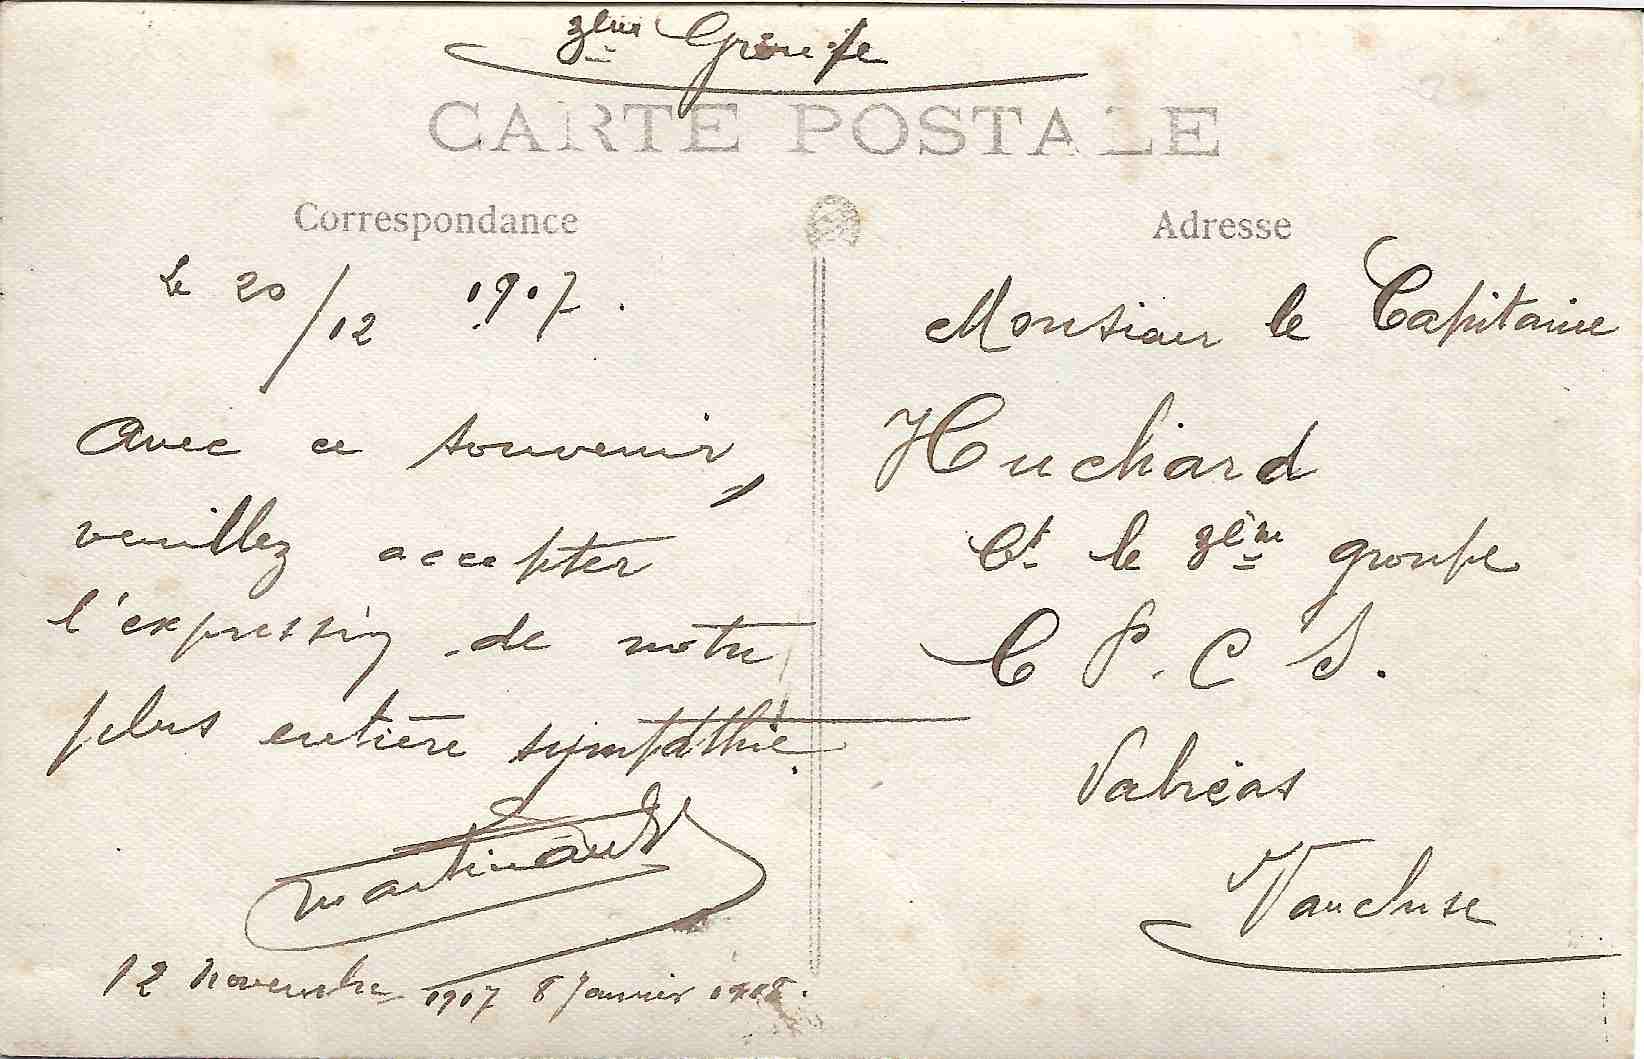 3ème Groupe
CARTE POSTALE
Correspondance
Le 20/12 1917.
Avec ce souvenir,
veuillez accepter
l'expression de notre
plus entière sympathie.
Martinault
12 novembre 1917 8 Janvier 1918.
Adresse
Monsieur le Capitaine
Huchard
Ct. le 3ème groupe
C P. C S.
Valréas
Vaucluse